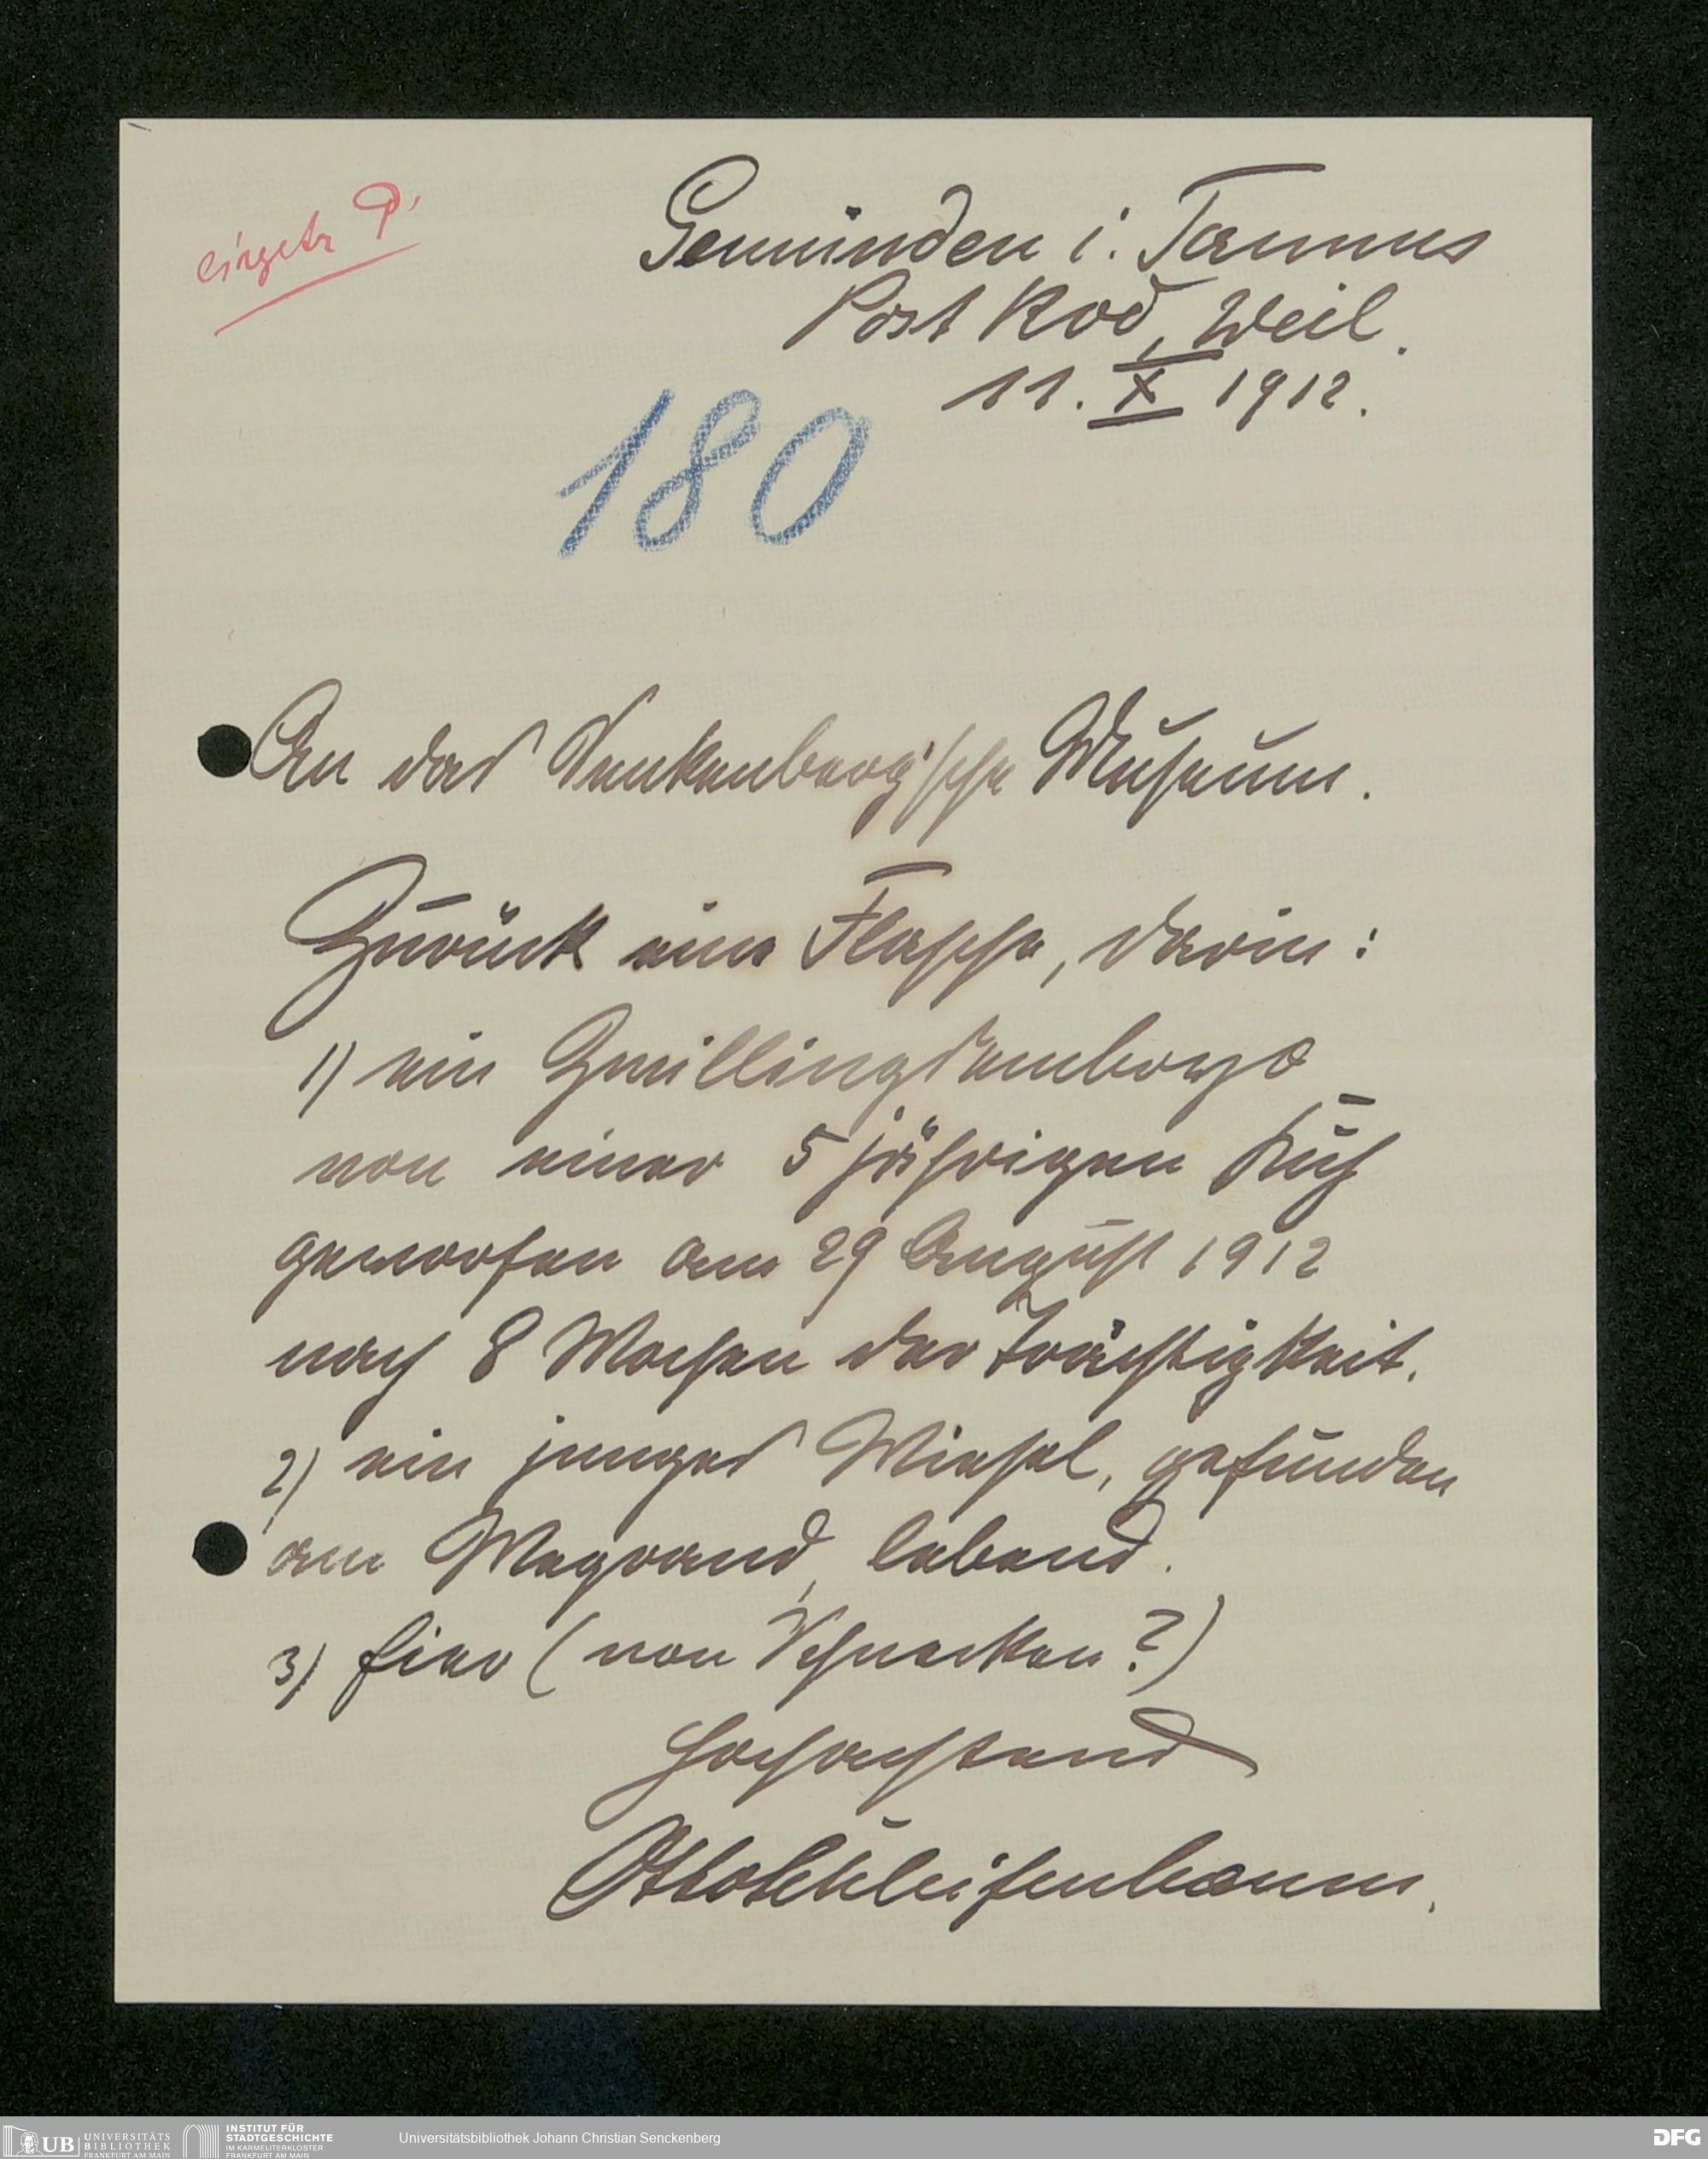 eingetr P.
Gemünden i. Taunus
Post Rod, Weil.
11. X 1912.
180
An das Senkenberg'sche Museum.
Zurück eine Flasche, darin:
1) ein Zwillingsembryo
von einer 5 jährigen Kuh
geworfen am 29 August 1912
nach 8 Wochen der Trächtigkeit.
2) ein junges Wiesel, gefunden
am Wegrand, lebend.
3) Eier (von Schnecken?)
Hochachtend
Otto Schleifenbaum.
UB UNIVERSITÄTS
BIBLIOTHEK
FRANKFURT AM MAIN
INSTITUT FÜR
STADTGESCHICHTE
IM KARMELITERKLOSTER
FRANKFURT AM MAIN
Universitätsbibliothek Johann Christian Senckenberg
DFG